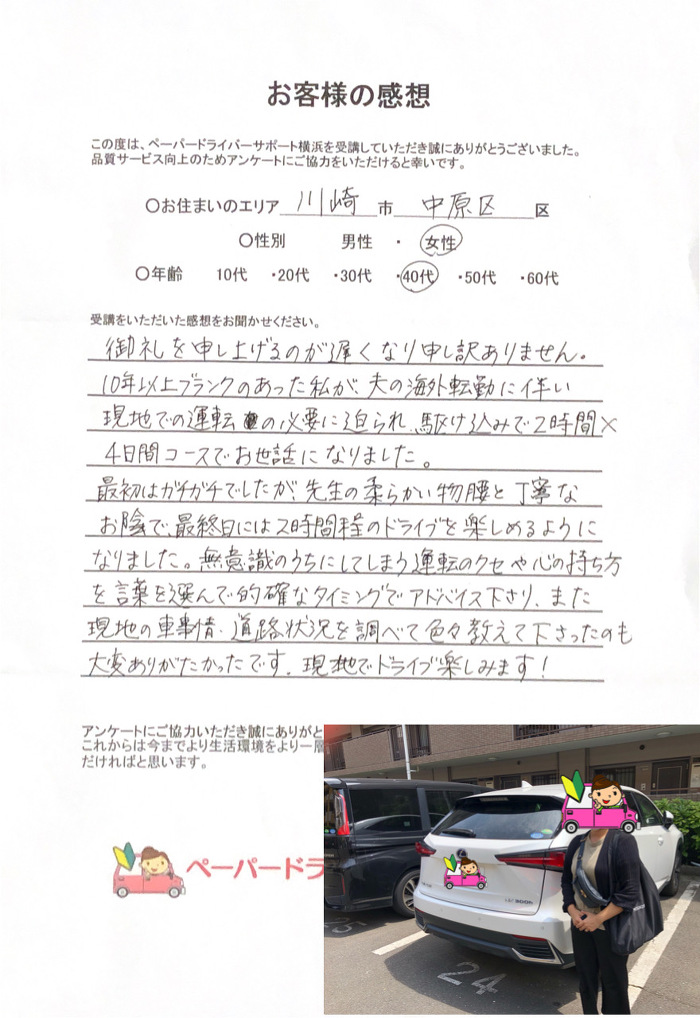 お客様の感想
この度は、ペーパードライバーサポート横浜を受講していただき誠にありがとうございました。
品質サービス向上のためアンケートにご協力をいただけると幸いです。
〇お住まいのエリア 川崎 市 中原区 区
〇性別 男性 ・ 女性
〇年齢 10代 ・20代 ・30代 ・40代 ・50代 ・60代
受講をいただいた感想をお聞かせください。
御礼を申し上げるのが遅くなり申し訳ありません。
10年以上ブランクのあった私が、夫の海外転勤に伴い
現地での運転の必要に迫られ、駆け込みで2時間×
4日間コースでお世話になりました。
最初はガチガチでしたが、先生の柔らかい物腰と丁寧な
お陰で、最終日には2時間程のドライブを楽しめるように
なりました。無意識のうちにしてしまう運転のクセや心の持ち方
を言葉を選んで的確なタイミングでアドバイス下さり、また
現地の車事情、道路状況を調べて色々教えて下さったのも
大変ありがたかったです。現地でドライブ楽しみます!
アンケートにご協力いただき誠にありがと
これからは今までより生活環境をより一層
だければと思います。
ペーパードラ
24